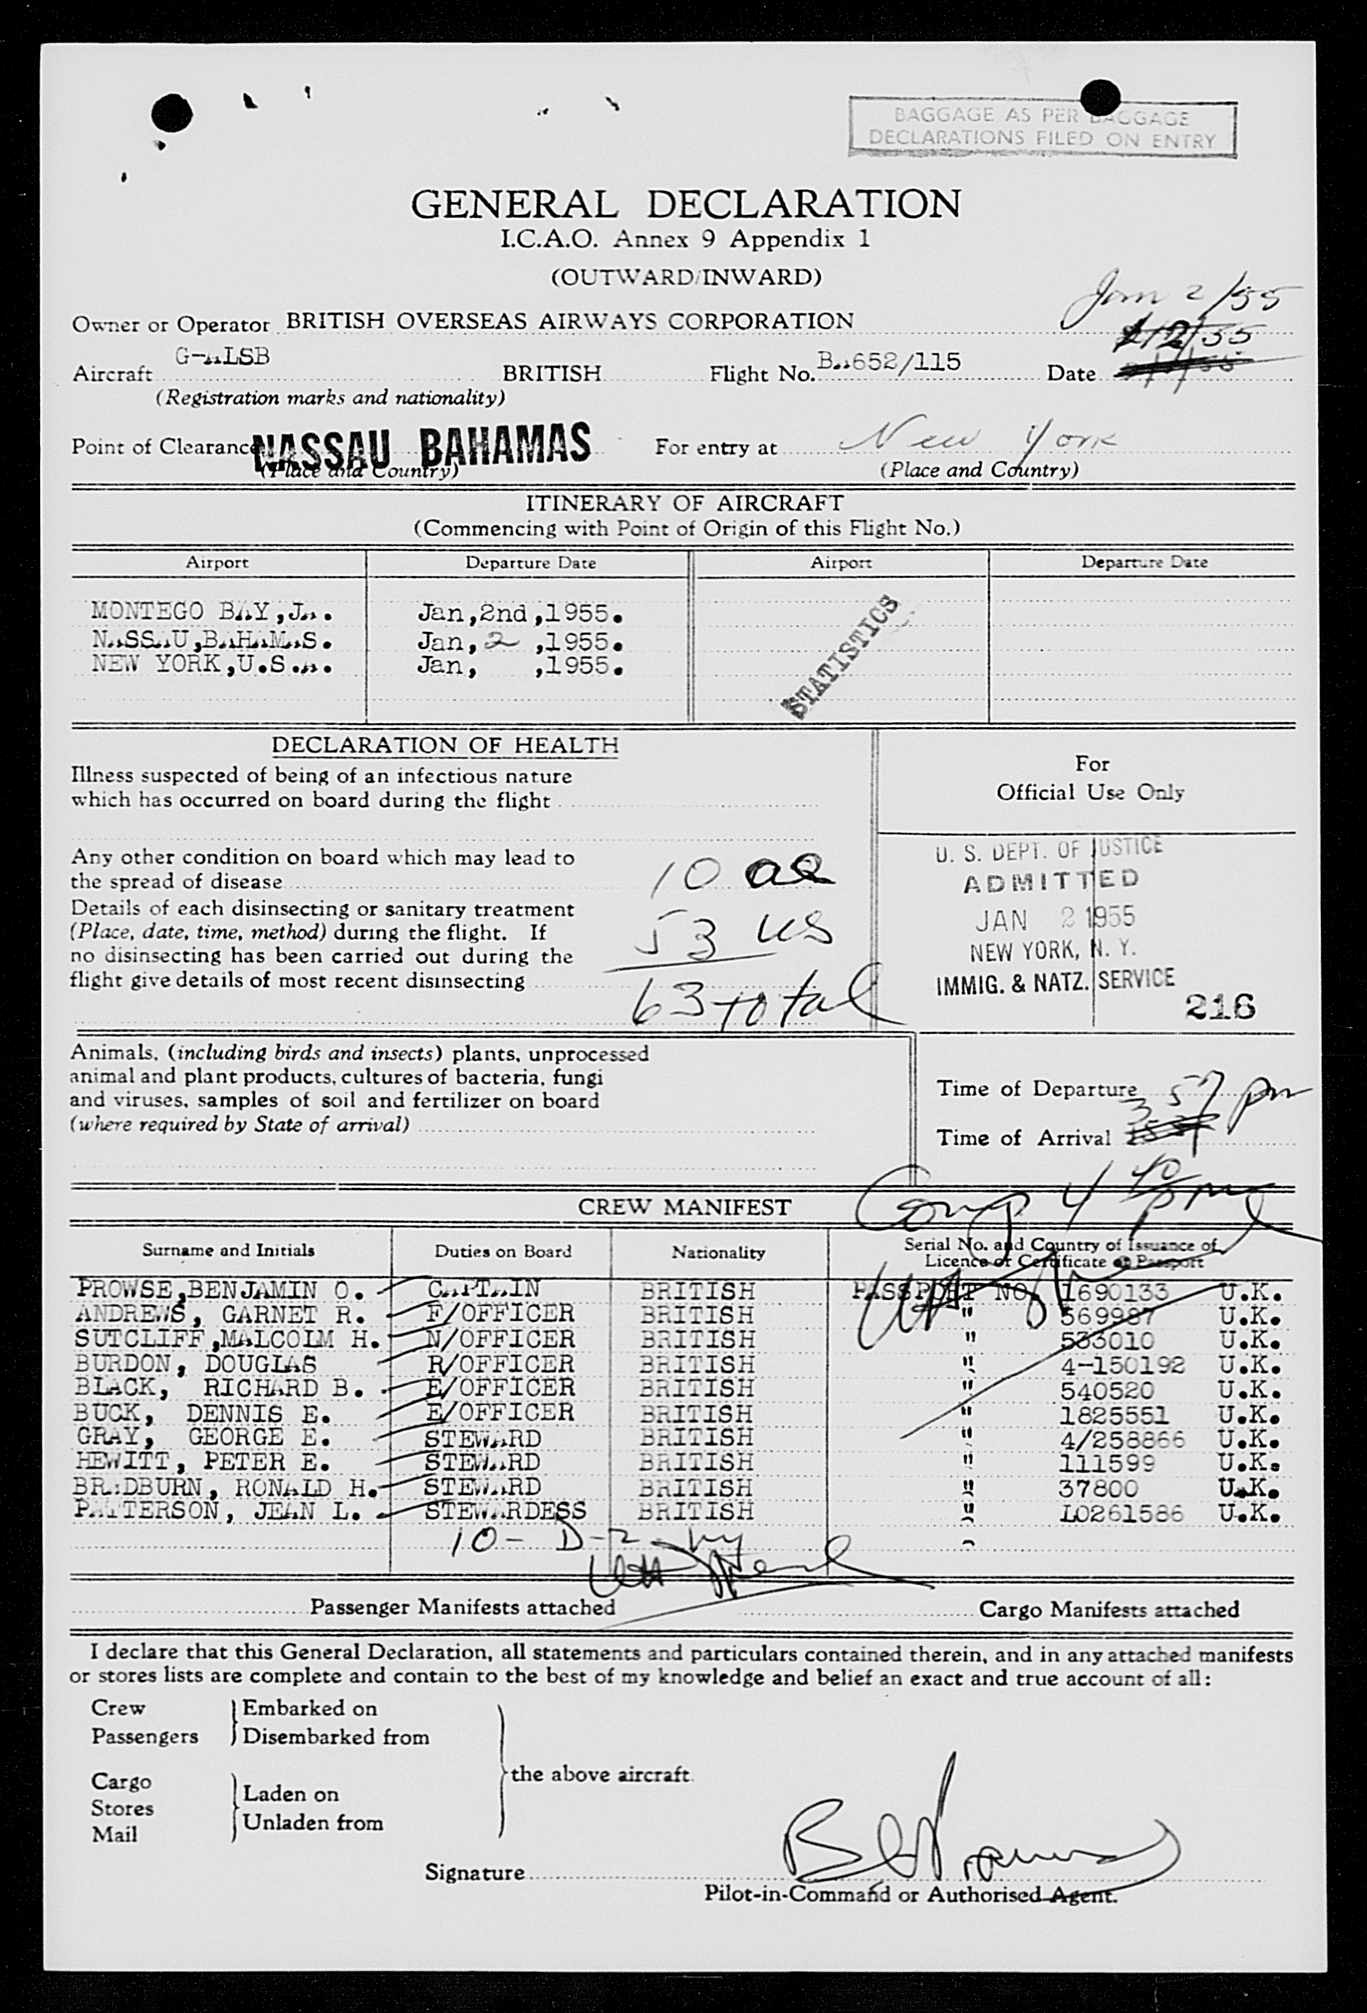 BAGGAGE AS PER BAGGAGE
DECLARATIONS FILED ON ENTRY
GENERAL DECLARATION
I.C.A.O. Annex 9 Appendix 1
(OUTWARD/INWARD)
Jan 2/55
Owner or Operator BRITISH OVERSEAS AIRWAYS CORPORATION
1/2/55
Aircraft G-ALSB BRITISH Flight No. BA652/115 Date
(Registration marks and nationality)
Point of Clearance NASSAU BAHAMAS For entry at New York
(Place and Country) (Place and Country)
ITINERARY OF AIRCRAFT
(Commencing with Point of Origin of this Flight No.)
Airport Departure Date Airport Departure Date
MONTEGO BAY,JA. Jan,2nd,1955.
NASSAU,BAHAMAS. Jan, 2 ,1955.
NEW YORK,U.S.A. Jan, ,1955.
STATISTICS
DECLARATION OF HEALTH
Illness suspected of being of an infectious nature
which has occurred on board during the flight
Any other condition on board which may lead to
the spread of disease
Details of each disinsecting or sanitary treatment
(Place, date, time, method) during the flight. If
no disinsecting has been carried out during the
flight give details of most recent disinsecting
10
53 US
63 total
For
Official Use Only
U. S. DEPT. OF JUSTICE
ADMITTED
JAN 2 1955
NEW YORK, N. Y.
IMMIG. & NATZ. SERVICE
216
Animals, (including birds and insects) plants, unprocessed
animal and plant products, cultures of bacteria, fungi
and viruses, samples of soil and fertilizer on board
(where required by State of arrival)
Time of Departure
Time of Arrival 3 57 pm
CREW MANIFEST
Surname and Initials Duties on Board Nationality Serial No. and Country of Issuance of
Licence or Certificate or Passport
PROWSE,BENJAMIN O. CAPTAIN BRITISH PASSPORT NO. 1690133 U.K.
ANDREWS, GARNET R. F/OFFICER BRITISH " 569987 U.K.
SUTCLIFF,MALCOLM H. N/OFFICER BRITISH " 533010 U.K.
BURDON, DOUGLAS R/OFFICER BRITISH " 4-150192 U.K.
BLACK, RICHARD B. E/OFFICER BRITISH " 540520 U.K.
BUCK, DENNIS E. E/OFFICER BRITISH " 1825551 U.K.
GRAY, GEORGE E. STEWARD BRITISH " 4/258866 U.K.
HEWITT, PETER E. STEWARD BRITISH " 111599 U.K.
BRADBURN, RONALD H. STEWARD BRITISH " 37800 U.K.
PATTERSON, JEAN L. STEWARDESS BRITISH " L0261586 U.K.
10 - D-2
Passenger Manifests attached Cargo Manifests attached
I declare that this General Declaration, all statements and particulars contained therein, and in any attached manifests
or stores lists are complete and contain to the best of my knowledge and belief an exact and true account of all:
Crew Embarked on
Passengers Disembarked from
the above aircraft.
Cargo Laden on
Stores
Mail Unladen from
Signature
Pilot-in-Command or Authorised Agent.